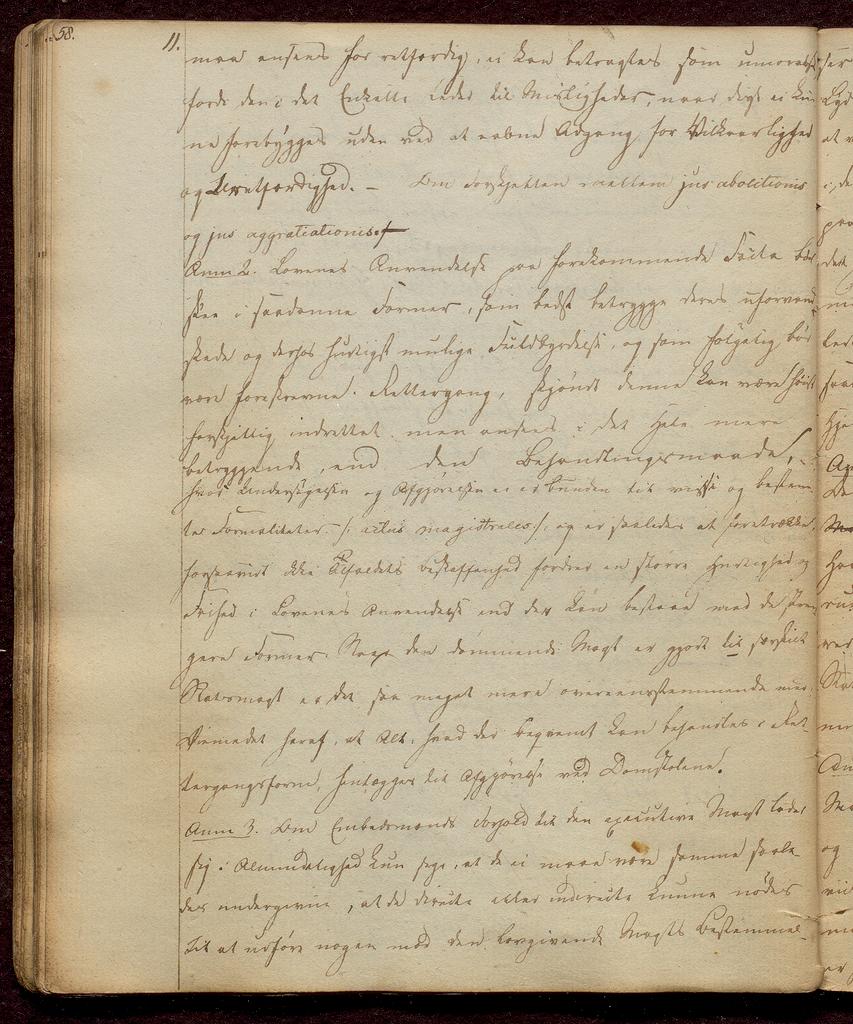 58.
11.
maa ansees for retfærdig, ei kan betragtes som umoralsk
fordi den i det Enkelte leder til Misligheder, naar disse ei kun-
ne forebygges uden ved at aabne Adgang for Vilkaarlighed
og Uretfærdighed. - Om Forskjellen mellem jus abolitionis
og jus aggratiationis.
Anm 2. Lovenes Anvendelse paa forekommende Facta bør
skee i saadanne Former, som bedst betrygge deres uforvan-
skede og derhos hurtigst mulige Fuldbyrdelse, og som følgelig bør
være foreskrevne. Rettergang, skjøndt denne kan være høist
forskjellig indrettet, maa ansees i det Hele mere
betryggende, end den Behandlingsmaade,
hvor Undersøgelsen og Afgjørelsen ei er bunden til visse og bestem-
te Formaliteter /: actus magistrales :/, og er saaledes at foretrække,
forsaavidt ikke Tilfældets Beskaffenhed fordrer en større Hurtighed og
Frihed i Lovenes Anvendelse end der kan bestaae med de stræn-
gere Former. Naar den dømmende Magt er gjort til særskilt
Statsmagt er det saa meget mere overeensstemmende med
Øiemedet heraf, at Alt, hvad der beqvemt kan behandles i Ret-
tergangsform, henlægges til Afgjørelse ved Domstolene.
Anm 3. Om Embedsmænds Forhold til den executive Magt lader
sig i Almindelighed kun sige, at de ei maae være samme saale-
des undergivne, at de directe eller indirecte kunne nødes
til at udføre nogen mod den lovgivende Magts Bestemmel-